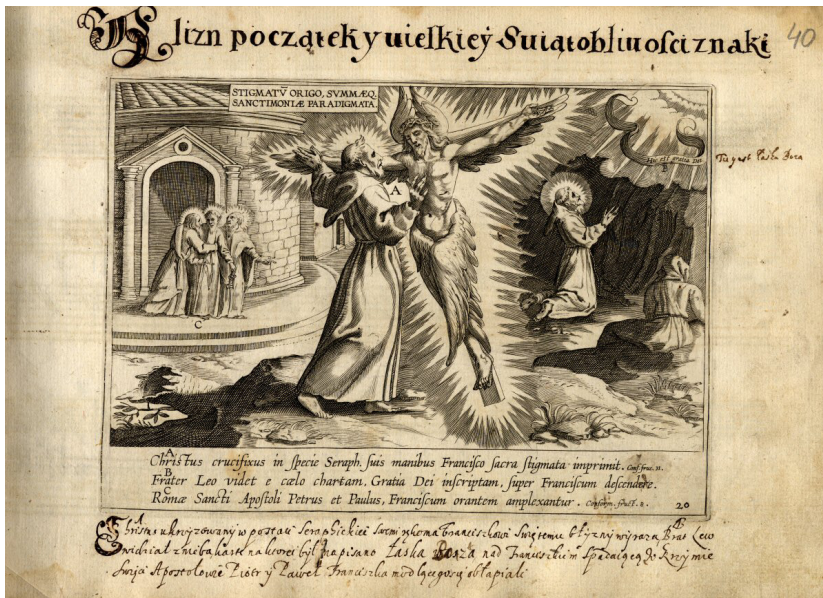 Blizn początek y uielkiey Suiątobliwosci znaki
40
STIGMATŪ ORIGO, SVMMÆQ.
SANCTIMONIÆ PARADIGMATA.
Hæc est gratia Dei
B
To yest Łaska Boza
A
C
A
Christus crucifixus in specie Seraph. suis manibus Francisco sacra stigmata imprimit. Conf. fruc. n.
B
Frater Leo videt e cælo chartam, Gratia Dei inscriptam, super Franciscum descendere.
C
Romæ Sancti Apostoli Petrus et Paulus, Franciscum orantem amplexantur. Conform. fruct. n.
20
A B
Christus ukrzyzowany w postaci Seraphickiei swemi rękoma Franciszkowi Swiętemu blyzny wyraza Brat Lew
widział z nieba kartę na ktorei był napisano Łaska Boza nad Franciszkiem spadaiącą do Rzymie
Swięci Apostołowie Piotr y Paweł Franciszka modlącego się obłapiali